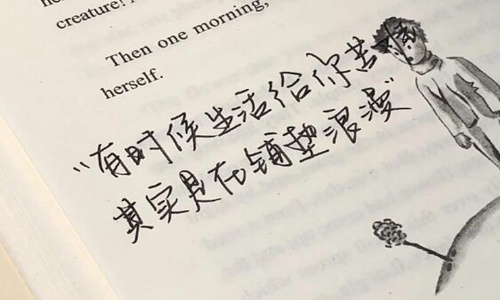 creature!
Then one morning,
herself.
“有时候生活给你苦难
其实是在铺垫浪漫”